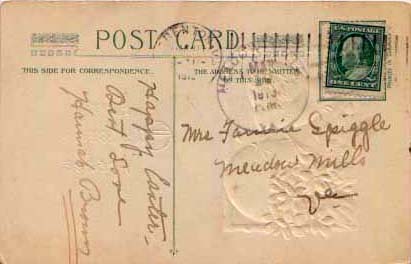 POST CARD
THIS SIDE FOR CORRESPONDENCE.
THE ADDRESS TO BE WRITTEN
ON THIS SIDE
U.S. POSTAGE
ONE CENT
Happy Easter
Best Love
Hannah Brown
Mrs Fannie Spiggle
Meadow Mills
Va